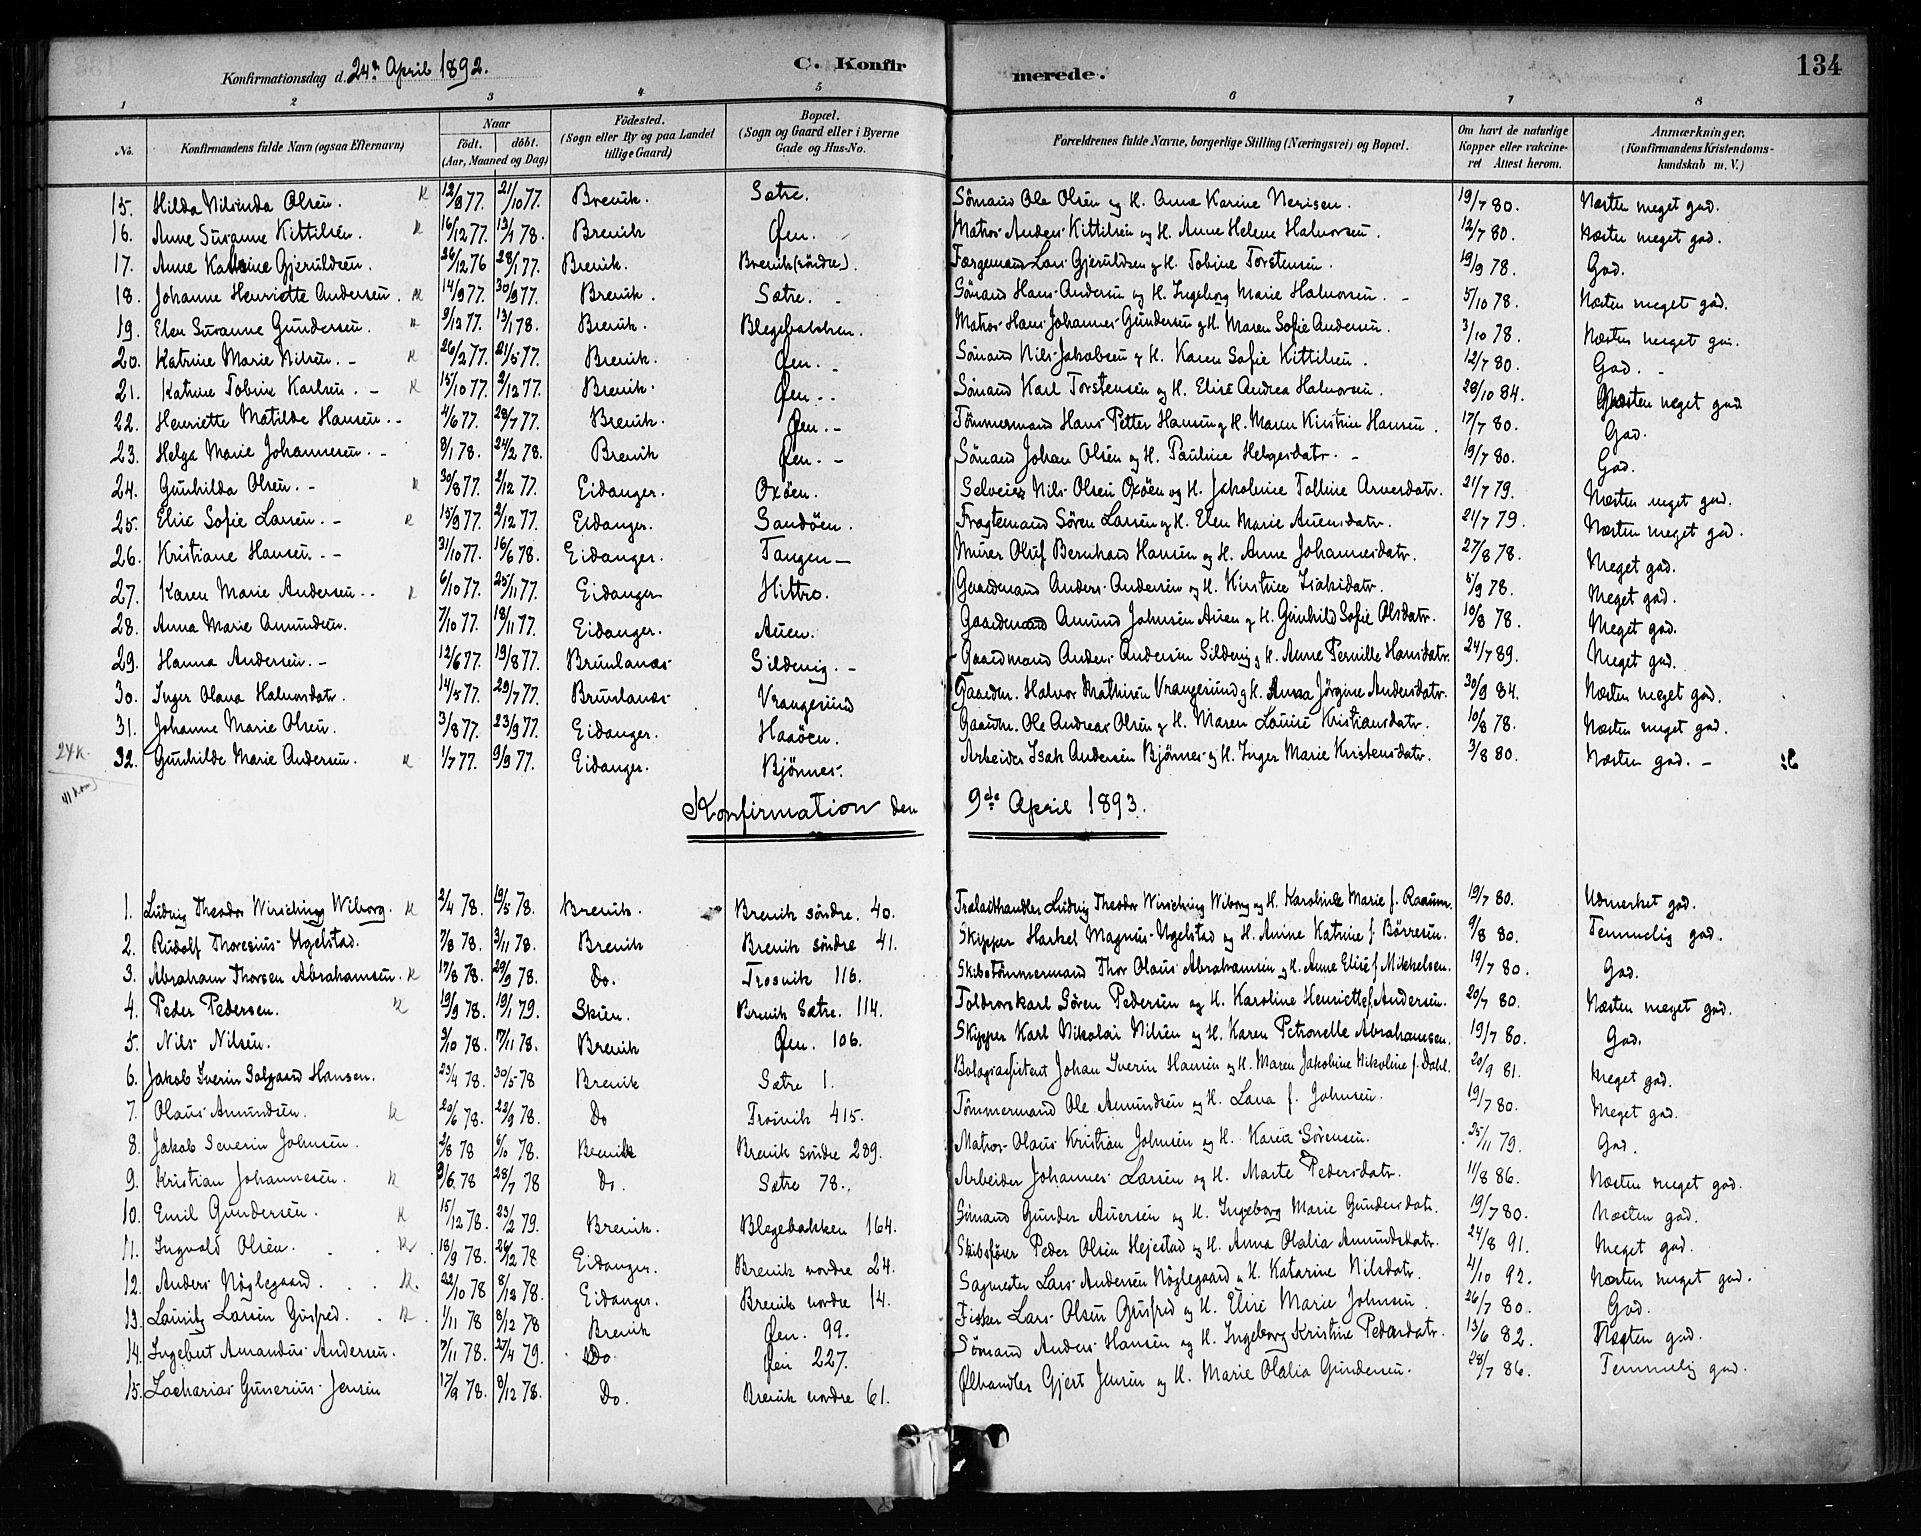 Konfirmationsdag d. 24de April 1892. C. Konfirmerede. 134
1 2 3 4 5 6 7 8
No. Konfirmandens fulde Navn (ogsaa Efternavn) Naar født. døbt. (Aar, Maaned og Dag) Fødested. (Sogn eller By og paa Landet tillige Gaard) Bopæl. (Sogn og Gaard eller i Byerne Gade og Hus-No. Forældrenes fulde Navne, borgerlige Stilling (Næringsvei) og Bopæl. Om havt de naturlige Kopper eller vakcineret Attest herom. Anmærkninger. (Konfirmandens Kristendomskundskab m. V.)
15. Hilda Nilsinda Olsen. K 12/8 77. 21/10 77. Brevik. Sætre. Sömand Ole Olsen og H. Anne Karine Nerisen. 19/7 80. Næsten meget god.
16. Anne Susanne Kittilsen. K 16/12 77. 13/1 78. Brevik Øen. Matros Anders Kittilsen og H. Anne Helene Halvorsen. 12/7 80. Næsten meget god.
17. Anne Gjeruldsen. 26/12 76 28/1 77. Brevik. Brevik (söndre). Færgemand Lars Gjeruldsen og H. Tobine Torstensen. 19/9 78. God.
18. Johanne Henriette Andersen. K 14/9 77. 30/9 77. Brevik. Sætre. Sömand Hans Andersen og H. Ingeborg Marie Halvorsen. 5/10 78. Næsten meget god.
19. Elen Susanne Gundersen. K 9/12 77. 13/1 78. Brevik. Blegebakken. Matros Hans Johannes Gundersen og H. Maren Sofie Andersen. 3/10 78. Næsten meget god.
20. Katrine Marie Nilsen. K 26/2 77. 21/5 77. Brevik. Øen. Sömand Nils Jakobsen og H. Karen Sofie Kittilsen. 12/7 80. God.
21. Katrine Tobine Karlsen. K 15/10 77. 2/12 77. Brevik. Øen. Sömand Karl Torstensen og H. Elise Andrea Halvorsen. 28/10 84. Næsten meget god
22. Henriette Matilde Hansen. 4/6 77. 29/7 77. Brevik. Øen. Tömmermand Hans Petter Hansen og H. Maren Kirstine Hansen. 17/7 80. God.
23. Helga Marie Johannesen. 8/1 78. 24/2 78. Brevik Øen. Sömand Johan Olsen og H. Pauline Helgesdatr. 19/7 80. God.
24. Gunhilda Olsen. K 30/8 77. 2/12 77. Eidanger. Oxöen. Selveier Nils Olsen Oxöen og H. Jakobine Tolline Arvesdatr. 21/7 79. Næsten meget god.
25. Elise Sofie Larsen. K 15/9 77. 2/12 77. Eidanger. Sandöen. Fragtemand Sören Larsen og H. Elen Marie Auensdatr. 21/7 79. Næsten meget god.
26. Kristiane Hansen. 31/10 77. 16/6 78. Eidanger. Tangen Murer Oluf Bernhard Hansen og H. Anne Johannesdatr. 27/8 78. Meget god.
27. Karen Marie Andersen. K 6/10 77. 25/11 77. Eidanger Hitterö. Gaardmand Anders Andersen og H. Kirstine Isaksdatr. 5/9 78. Meget god.
28. Anna Marie Amundsen. 7/10 77. 18/11 77. Eidanger. Auen. Gaardmand Amund Johnsen Auen og H. Gunhild Sofie Olsdatr. 10/8 78. Meget god.
29. Hanna Andersen. 12/6 77. 19/8 77. Brunlanæs Sildevig. Gaardmand Anders Andersen Sildevig og H. Anne Pernille Hansdatr. 24/7 89. Meget god.
30. Inger Olava Halvorsdatr. 14/5 77. 29/7 77. Brunlanæs Vrangesund Gaardm. Halvor Mathisen Vrangesund og H. Anna Jörgine Andersdatr. 30/9 84. Næsten meget god.
31. Johanne Marie Olsen. 3/8 77. 23/9 77. Eidanger. Haaöen. Gaardm. Ole Andreas Olsen og H. Maren Louise Kristiansdatr. 10/8 78. Næsten meget god.
24 K.
32. Gunhilde Marie Andersen. K 1/7 77. 9/9 77. Eidanger. Bjönnes. Arbeider Isak Andersen Bjönnes og H. Inger Marie Kristensdatr. 3/8 80. Næsten god.
Konfirmation den 9de April 1893.
1. Ludvig Theodor Wirsching Wiborg. K 2/4 78. 19/5 78. Brevik. Brevik söndre. 40. Trælasthandler Ludvig Theodor Wirsching Wiborg og H. Karoline Marie f. Raaum. 19/7 80. Udmerket god.
2. Rudolf Thoresius Ugelstad. 7/8 78. 3/11 78. Brevik Brevik söndre 41. Skipper Harkel Magnus Ugelstad og H. Anine Katrine f. Börresen. 9/8 80. Temmelig god.
3. Abraham Thorsen Abrahamsen. K 17/8 78. 29/9 78. Do. Trosvik 116. Skibstömmermand Thor Olaus Abrahamsen og H. Anne Elise f. Mikkelsen. 19/7 80. God.
4. Peder Pedersen. K 19/9 78. 19/1 79. Skien. Brevik Sætre. 114. Toldrorskarl Sören Pedersen og H. Karoline Henriette f. Andersen. 20/7 80. Næsten meget god.
5. Nils Nilsen. 3/10 78. 17/11 78. Brevik Øen. 106. Skipper Karl Nikolai Nilsen og H. Karen Petronelle Abrahamsen. 19/7 80. God.
6. Jakob Iverin Salgaard Hansen. 23/4 78. 30/5 78 Brevik Sætre 1. Bologsassistent Johan Iverin Hansen og H. Maren Jakobine Nikoline f. Dahl. 20/9 81. Meget god.
7. Olaus Amundsen. K 20/6 78. 22/9 78. Do Trosvik 415. Tömmermand Ole Amundsen og H. Lava f. Johnsen. 19/7 80. Meget god.
8. Jakob Severin Johnsen. 2/8 78 6/10 78. Brevik Brevik söndre 289. Matros Olaus Kristian Johnsen og H. Karen Sörensen. 25/11 79. God.
9. Kristian Johannesen. K 9/6 78 28/7 78 Do. Sætre 78. Arbeider Johannes Larsen og H. Marte Pedersdatr. 11/8 86. Næsten meget god.
10. Emil Gundersen. K 15/12 78. 23/2 79. Brevik. Blegebakken 164. Sömand Gunder Auersen og H. Ingeborg Marie Gundersdatr. 19/7 80. Næsten god.
11. Ingvald Olsen. K 18/9 78. 26/12 78 Eidanger. Brevik nordre 24. Skibsförer Peder Olsen Hejestad og H. Anna Olalia Amundsdatr. 24/8 91. Meget god.
12. Anders Nöglegaard. K. 22/10 78 8/12 78. Eidanger. Brevik nordre 14. Sagmester Lars Andersen Nöglegaard og H. Katarine Nilsdatr. 4/10 92. Næsten meget god.
13. Lauritz Larsen Gusfred. K. 1/11 78 8/12 78 Brevik Øen. 99. Fisker Lars Olsen Gusfred og H. Elise Marie Johnsen. 26/7 80. God.
14. Ingebret Amandus Andersen. 7/11 78. 27/4 79. Do Øen 227. Sömand Anders Hansen og H. Ingeborg Kristine Pedersdatr. 13/6 82. Næsten god.
15. Zacharias Gunerius Jensen 17/9 78. 8/12 78. Do. Brevik nordre 61. Ølhandler Gjert Jensen og H. Marie Olalia Gundersen. 28/7 86. Temmelig god.